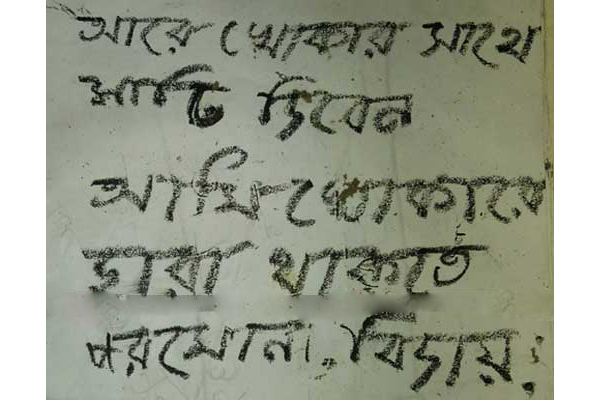 আরে খোকার সাথে
মাটি দিবেন
আমি খোকারে
ছারা থাকতে
পরমোনা, বিদায়: